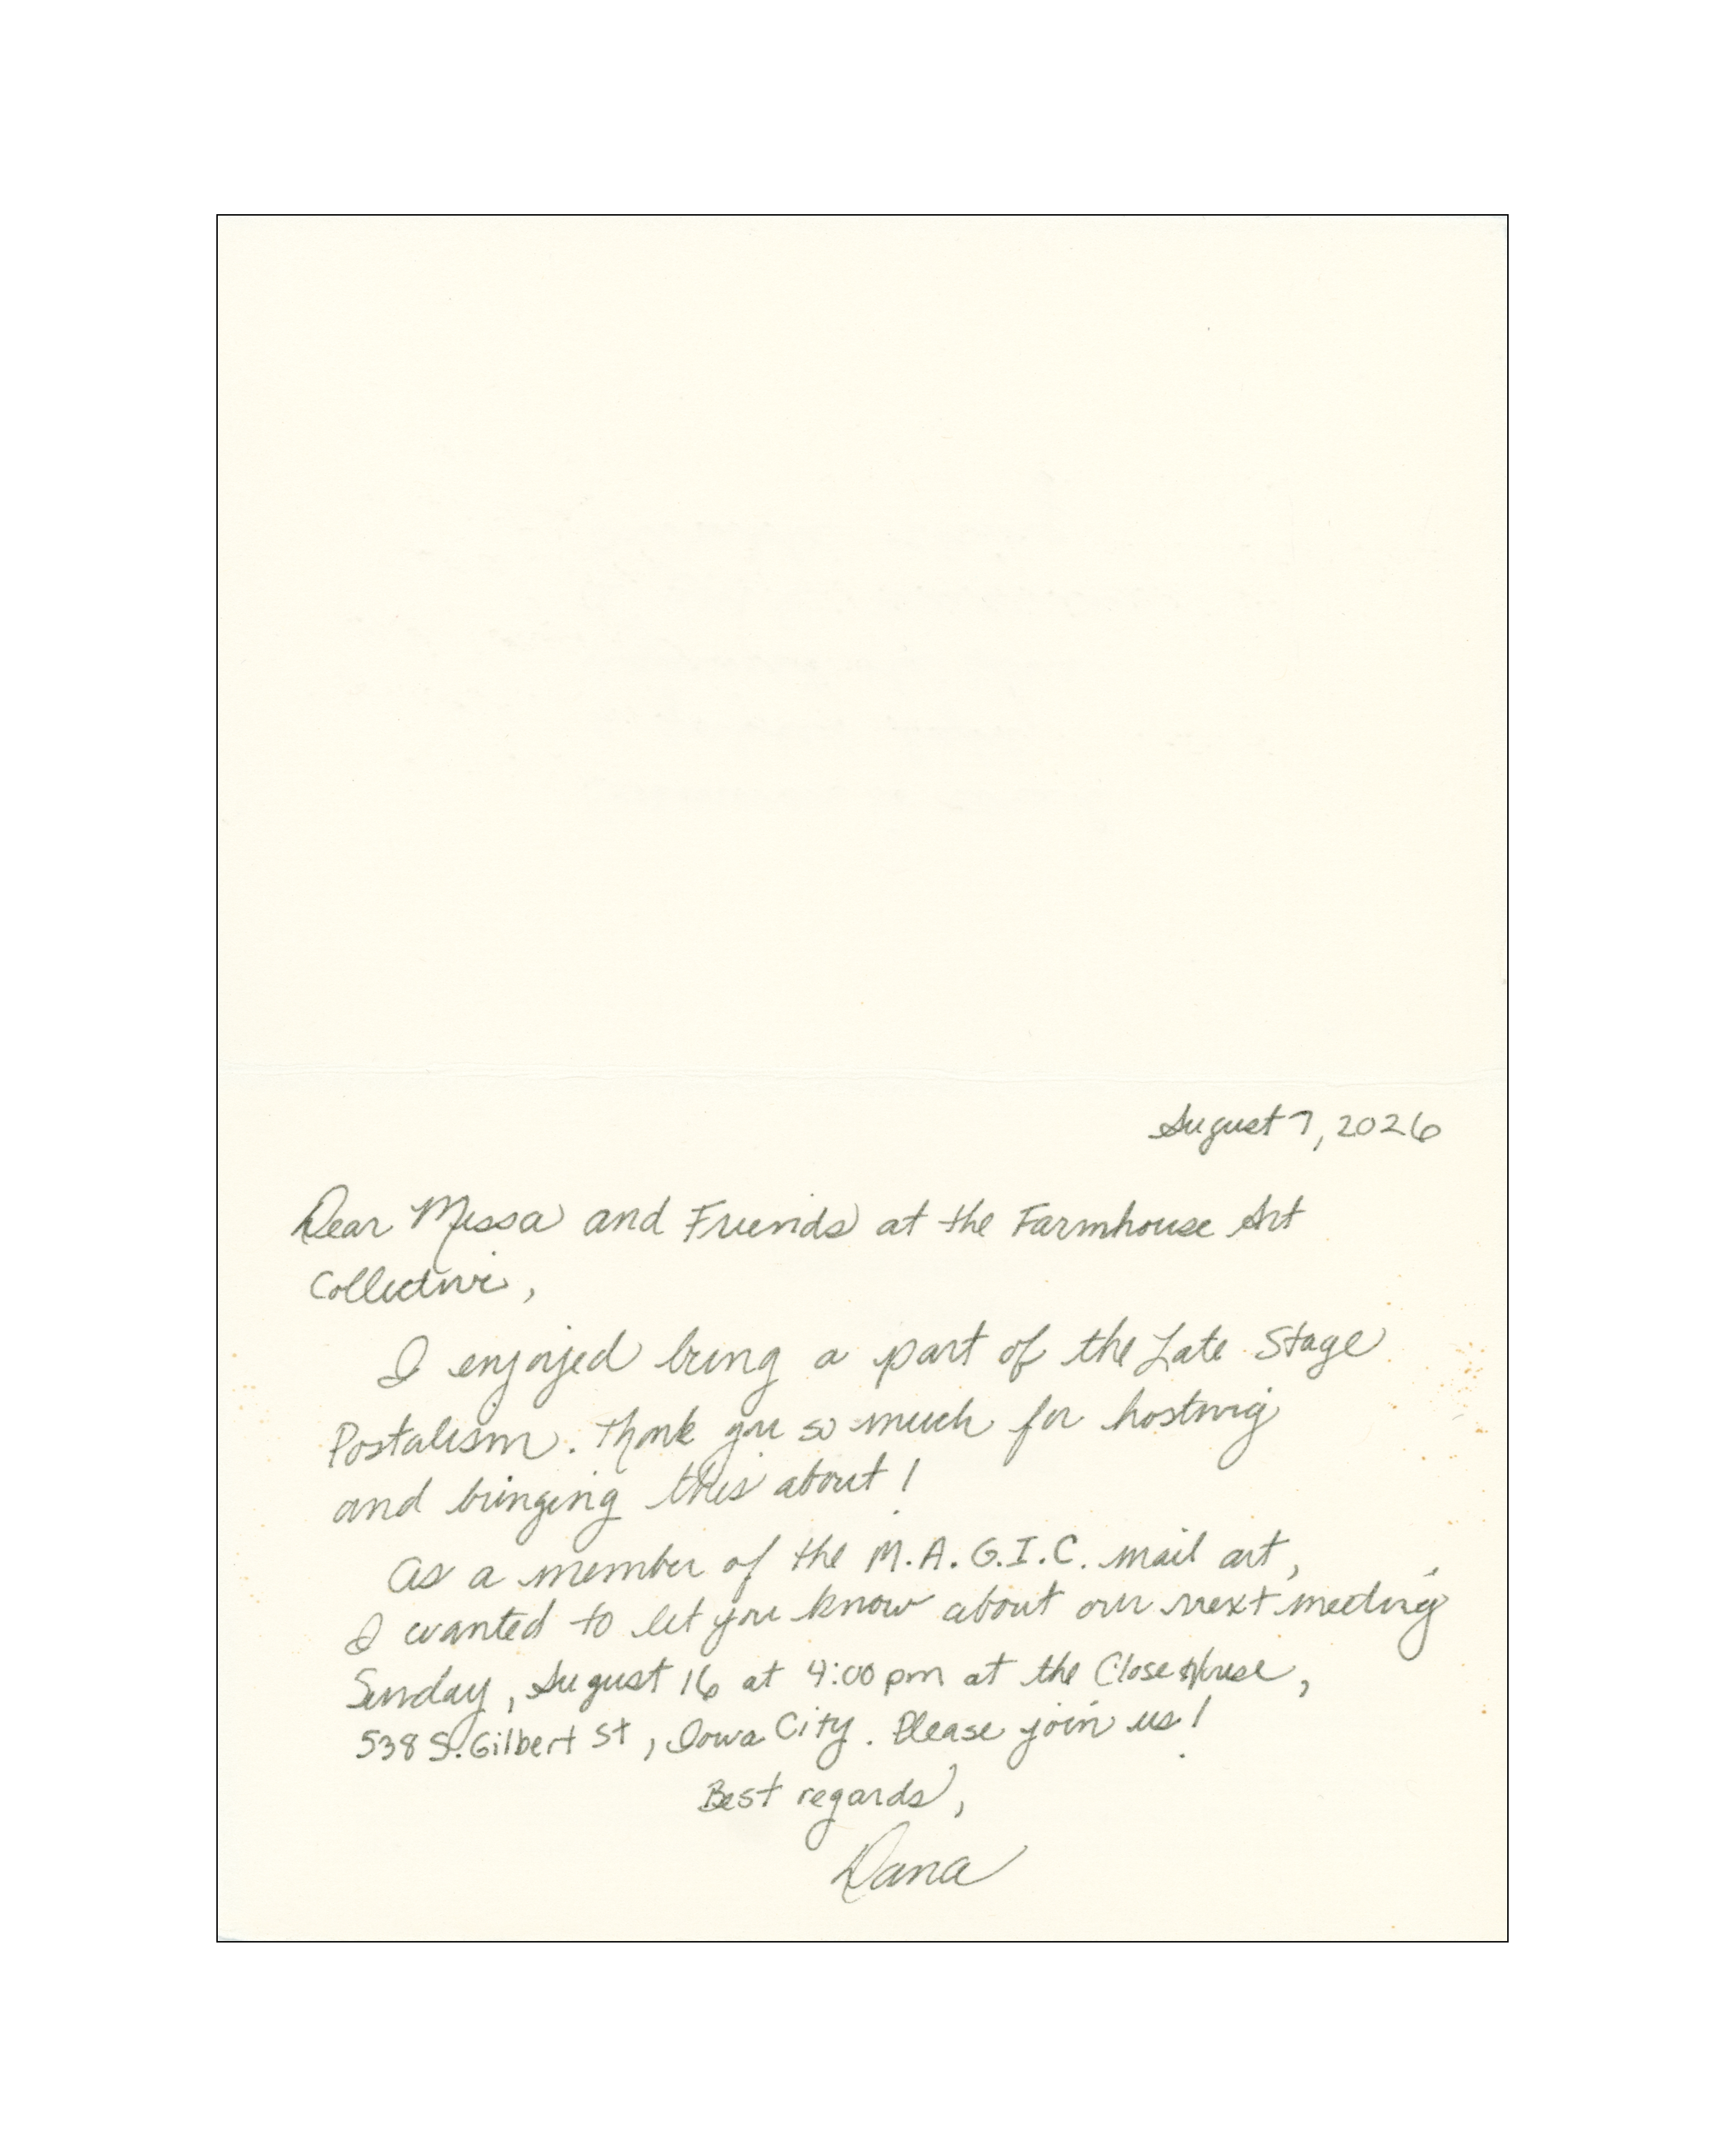 August 7, 2026
Dear Missa and Friends at the Farmhouse Art
Collective,
I enjoyed being a part of the Late Stage
Postalism. Thank you so much for hosting
and bringing this about!
As a member of the M.A.G.I.C. mail art,
I wanted to let you know about our next meeting
Sunday, August 16 at 4:00 pm at the Close House,
538 S. Gilbert St, Iowa City. Please join us!
Best regards,
Dana